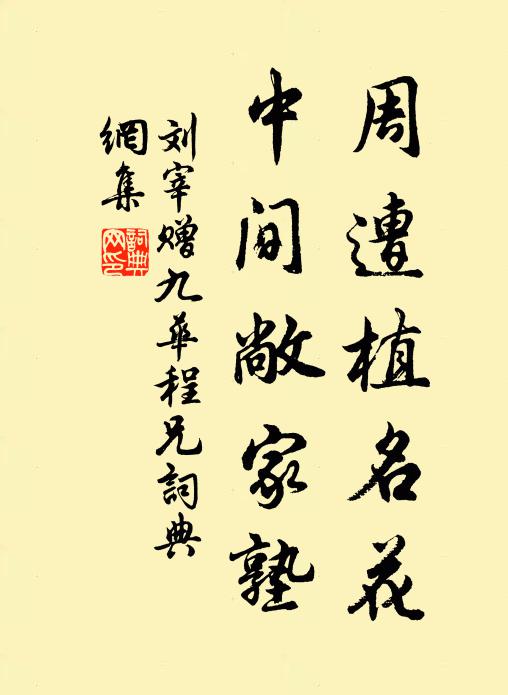 周遭植名花
中间敞家塾
刘宰赠九华程兄詞典
網集
詞典网印